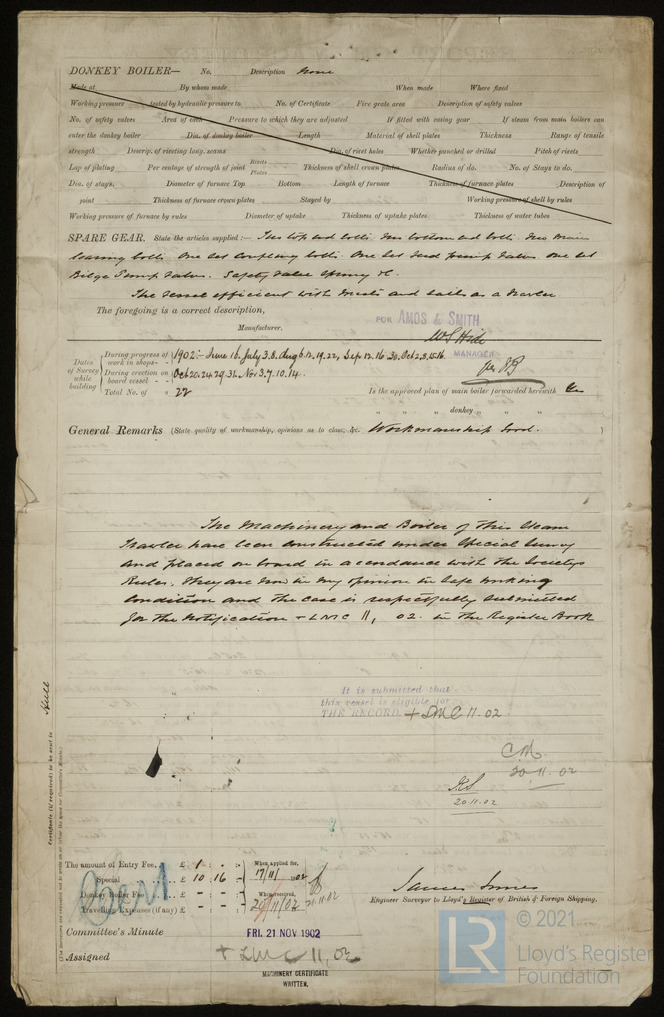 DONKEY BOILER— No. Description None
Made at By whom made When made Where fixed
Working pressure tested by hydraulic pressure to No. of Certificate Fire grate area Description of safety valves
No. of safety valves Area of each Pressure to which they are adjusted If fitted with easing gear If steam from main boilers can
enter the donkey boiler Dia. of donkey boiler Length Material of shell plates Thickness Range of tensile
strength Descrip. of riveting long. seams Dia. of rivet holes Whether punched or drilled Pitch of rivets
Lap of plating Per centage of strength of joint Rivets Plates Thickness of shell crown plates Radius of do. No. of Stays to do.
Dia. of stays. Diameter of furnace Top Bottom Length of furnace Thickness of furnace plates Description of
joint Thickness of furnace crown plates Stayed by Working pressure of shell by rules
Working pressure of furnace by rules Diameter of uptake Thickness of uptake plates Thickness of water tubes
SPARE GEAR. State the articles supplied:— Two top end bolts. Two bottom end bolts. Two main
bearing bolts. One set coupling bolts. One set feed pump valves one set
Bilge Pump valves. Safety valve spring &c.
The vessel efficient with masts and sails as a Trawler
The foregoing is a correct description,
FOR AMOS & SMITH
Manufacturer.
MANAGER
Dates of Survey while building
During progress of work in shops- - 1902:- June 16. July 3.8. Aug 6.12.19.22, Sep 12.16.30. Oct 2,8,15.16.
During erection on board vessel - - Oct 20.24.29.31. Nov 3.7.10.14.
Total No. of 22
Is the approved plan of main boiler forwarded herewith Yes
" " " donkey " " "
General Remarks (State quality of workmanship, opinions as to class, &c. Workmanship Good.
The Machinery and Boiler of this Steam
Trawler have been constructed under Special Survey
and placed on board in accordance with the Society's
Rules. They are now in my opinion in safe working
condition and the case is respectfully submitted
for the Notification + LMC 11, 02. in the Register Book
It is submitted that
this vessel is eligible for
THE RECORD. + LMC 11.02.
20.11.02
20.11.02
Certificate (if required) to be sent to Hull
The amount of Entry Fee. . £ 1 : - : -
Special . . . . £ 10 : 16 :
Donkey Boiler Fee . . . £ - : - :
Travelling Expenses (if any) £ - : - :
When applied for,
17/11/02
When received,
20/11/02 21.11.02
James Innes
Engineer Surveyor to Lloyd's Register of British & Foreign Shipping.
Committee's Minute FRI. 21 NOV 1902
Assigned + LMC 11,02
MACHINERY CERTIFICATE
WRITTEN.
LR
© 2021
Lloyd's Register
Foundation